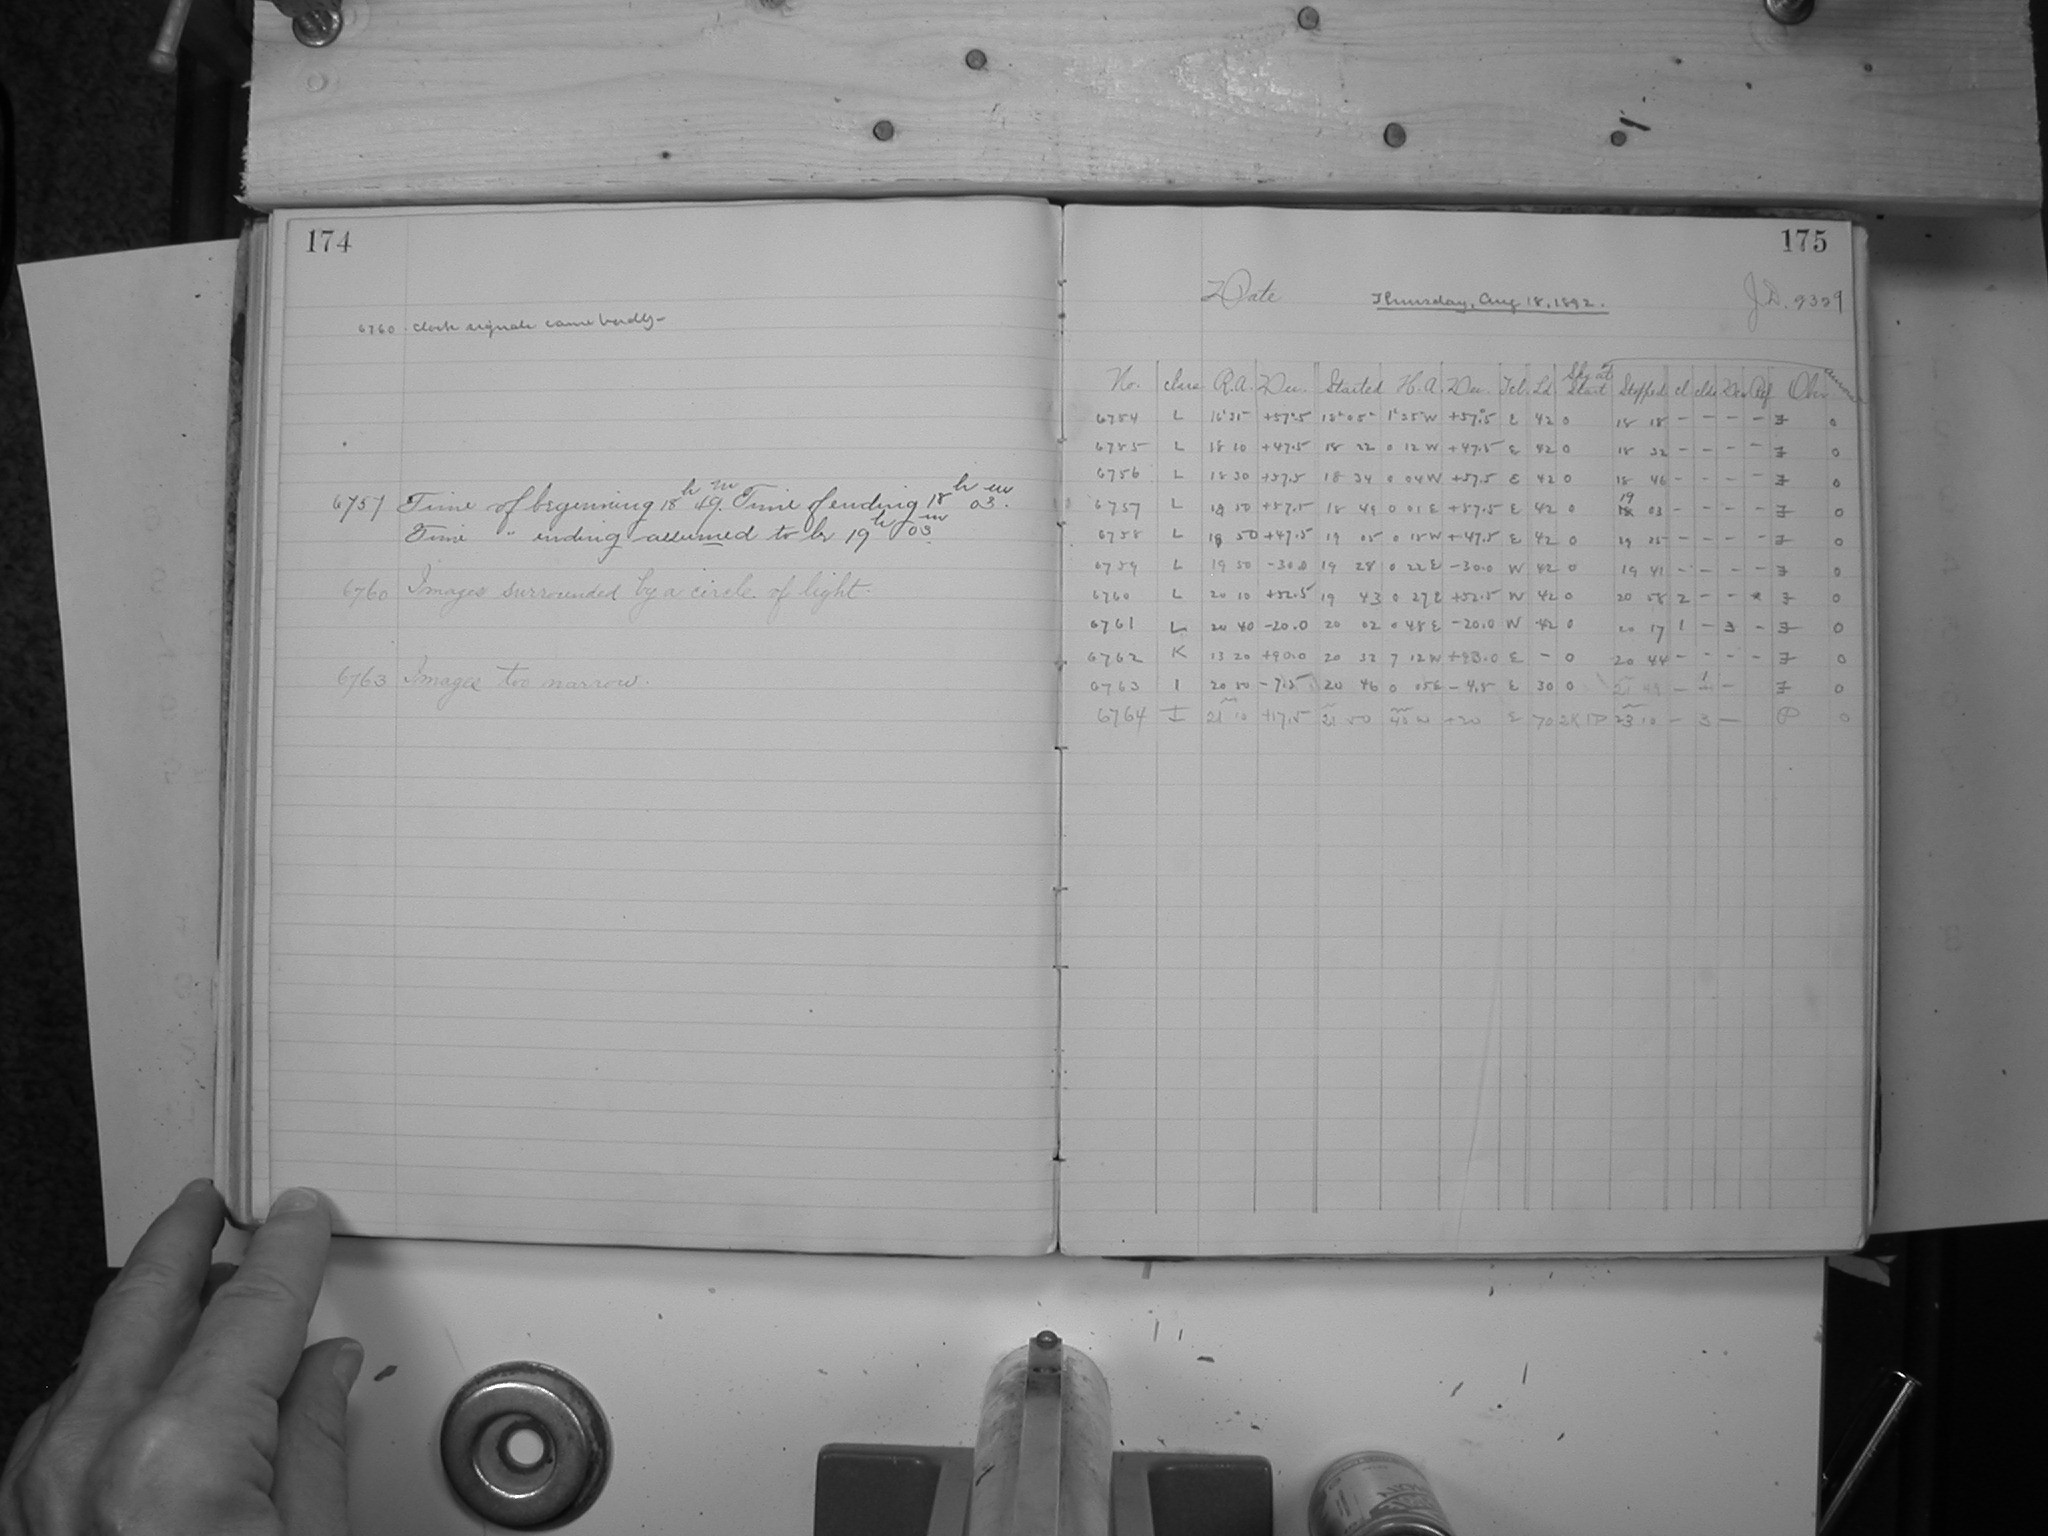 174
6760 Clock signals came badly-
6757 Time of beginning 18h 49m. Time of ending 18h 03m.
Time " ending assumed to be 19h 03m
6760 Images surrounded by a circle of light.
6763 Images too narrow.
175
Date Thursday, Aug 18, 1892. J.D. 2329
No. Class R.A. Dec. Started H.A Dec. Tel. Ld. Sky at Start Stopped cl clds Dew Ref Obs
6754 L 16 35 +57.5 18 05 1 25 W +57.5 E 42 0 18 18 - - - - Z 0
6755 L 18 10 +47.5 18 22 0 12 W +47.5 E 42 0 18 32 - - - - Z 0
6756 L 18 30 +57.5 18 34 0 04 W +57.5 E 42 0 18 46 - - - - Z 0
6757 L 18 50 +57.5 18 49 0 01 E +57.5 E 42 0 19 03 - - - - Z 0
6758 L 18 50 +47.5 19 05 0 15 W +47.5 E 42 0 19 25 - - - - Z 0
6759 L 19 50 -30.0 19 28 0 22 E -30.0 W 42 0 19 41 - - - - Z 0
6760 L 20 10 +52.5 19 43 0 27 E +52.5 W 42 0 20 58 2 - - * Z 0
6761 L 20 40 -20.0 20 02 0 48 E -20.0 W 42 0 20 17 1 - 3 - Z 0
6762 K 13 20 +90.0 20 32 7 12 W +93.0 E - 0 20 44 - - - - Z 0
6763 I 20 50 -7.5 20 46 0 05 E -4.5 E 30 0 21 49 - 1 - Z 0
6764 I 21 10 +17.5 21 50 40 W +20 E 70 2K 1P 23 10 - 3 - P 0